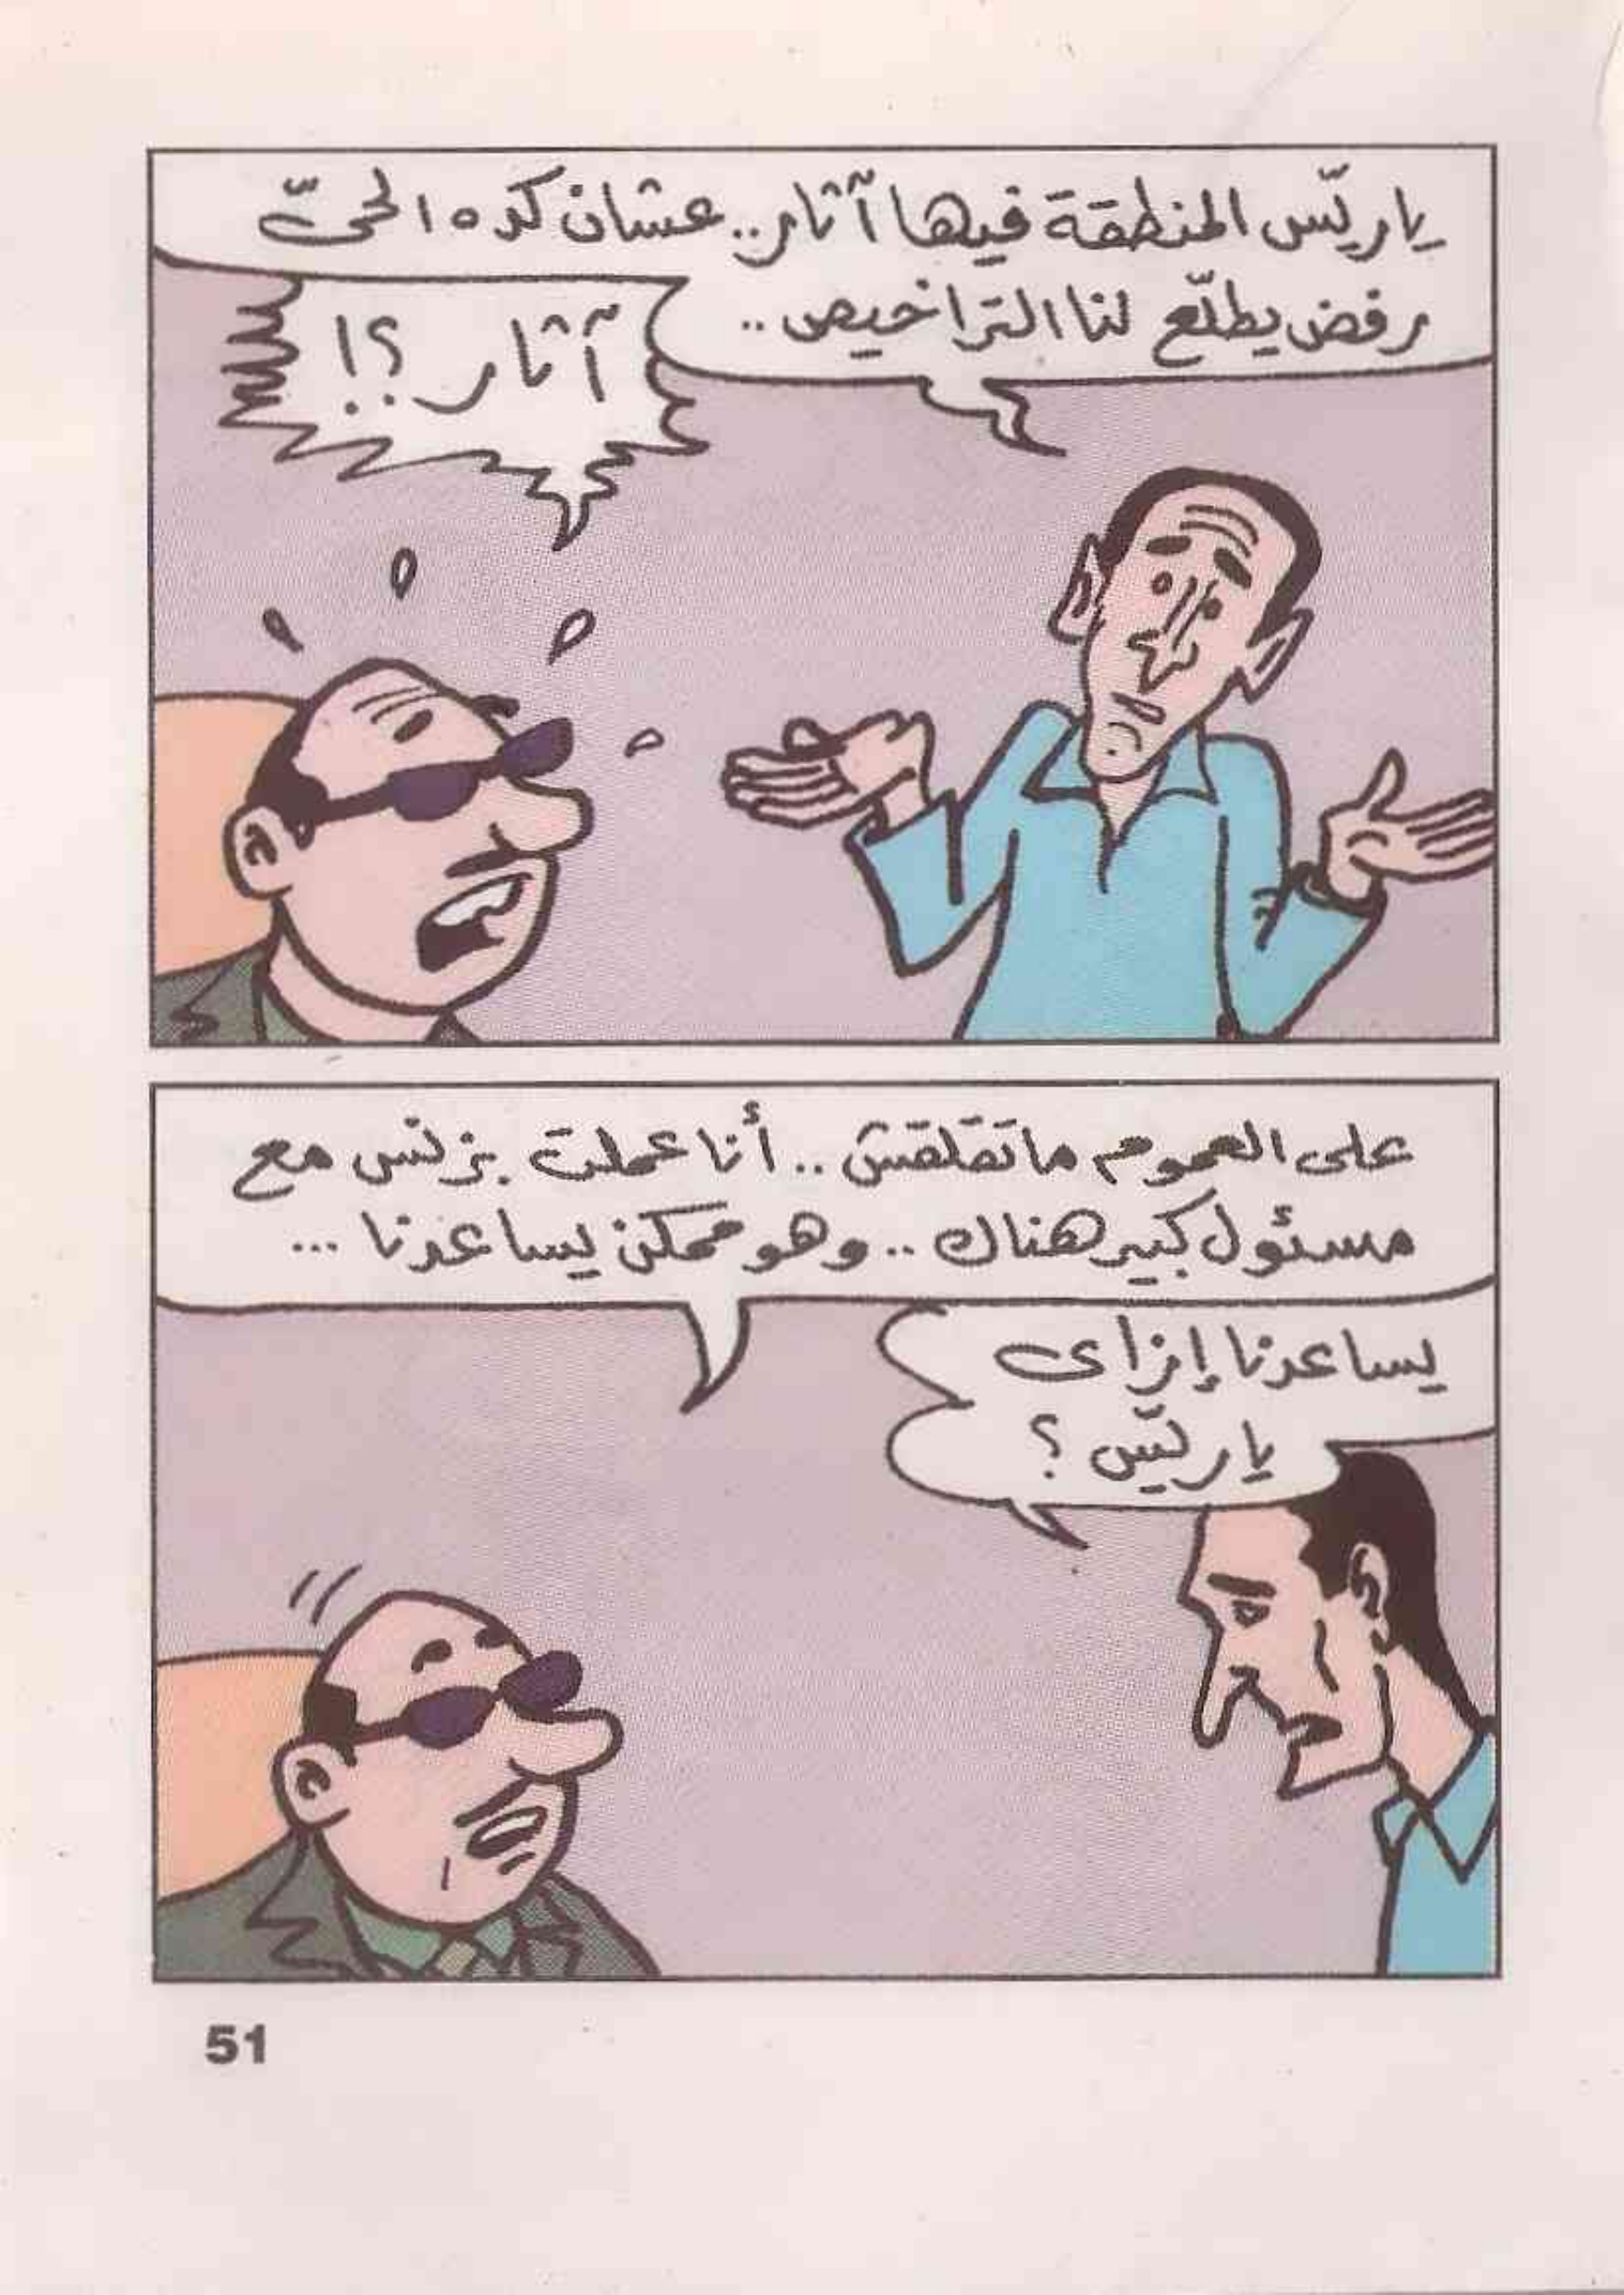 ياريّس المنطقة فيها آثار.. عشان كده الحىّ
رفض يطلّع لنا التراخيص..
آثار ؟!
على العموم ماتقلقش .. أنا عملت بزنس مع
مسئول كبير هناك .. وهو ممكن يساعدنا ...
يساعدنا إزاى
ياريّس ؟
51